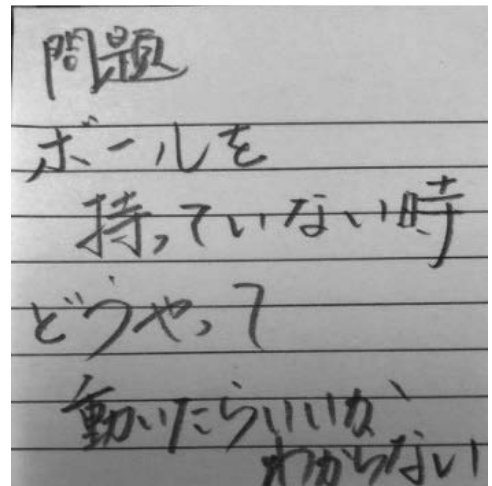 問題
ボールを
持っていない時
どうやって
動いたらいいか
わからない